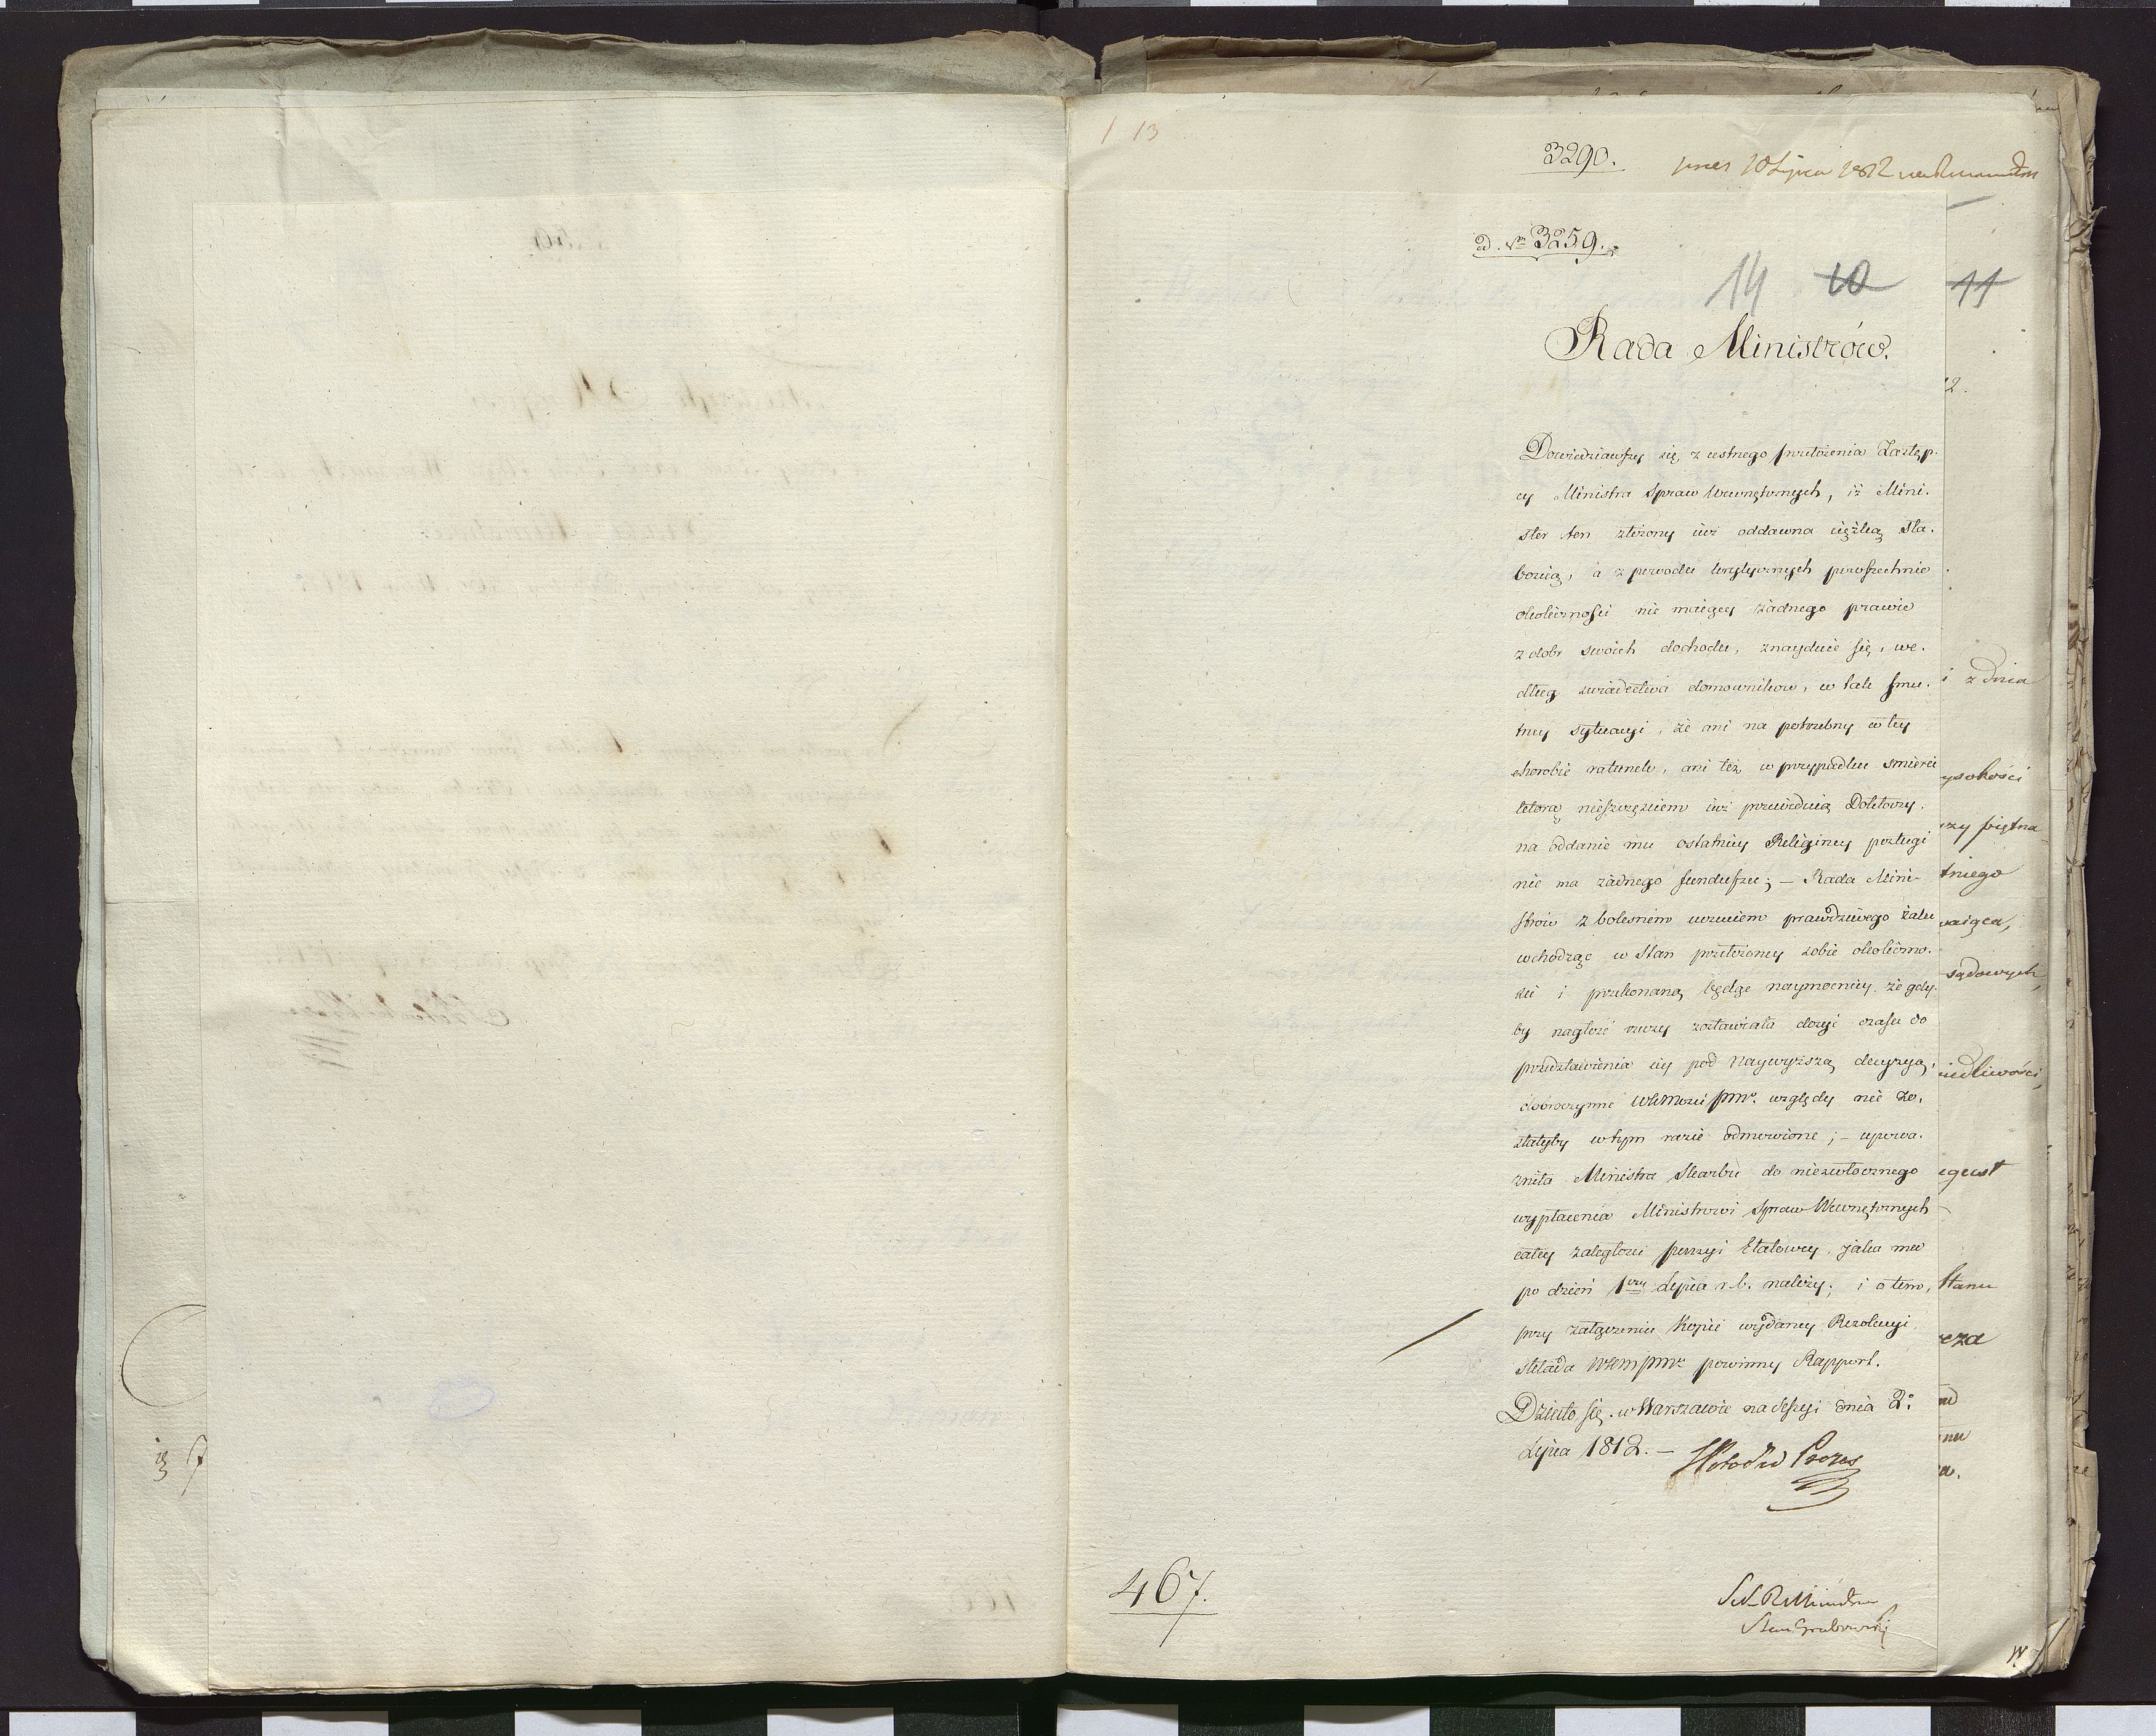 1 13
3290.
10 Lipca 1812
ad. Nrm 3259.
14 10 11
Rada Ministrów.
Dowiedziawszy się z ustnego przełożenia Zastęp-
cy Ministra Spraw Wewnętrznych, iż Mini-
ster ten złożony iuż oddawna ciężką sła-
bością, a z powodu krytycznych powszechnie
okoliczności nie maiący żadnego prawie
z dobr swoich dochodu, znayduie się, we-
dług świadectwa domowników, w tak smu-
tney sytuacyi, że ani na potrzebny w tey
chorobie ratunek, ani też w przypadku śmierci
którą nieszczęściem iuż przewidują Doktorzy.
na oddanie mu ostatniey Religiney posługi
nie ma żadnego funduszu; – Rada Mini-
strów z bolesnem uczuciem prawdziwego żalu
wchodząc w stan przełożoney sobie okoliczno-
ści i przekonaną będąc naymocniey, że gdy-
by nagłość rzeczy zostawiała dosyć czasu do
przedstawienia iey pod Naywyższą decyzyą,
dobroczynne WKMości PMo. względy nie zo-
stałyby w tym razie odmówione; – upowa-
żniła Ministra Skarbu do niezwłocznego
wypłacenia Ministrowi Spraw Wewnętrznych
całey zaległości pensyi Etatowey, jaka mu
po dzień 1szy Lipca r. b. należy; i o tem,
przy załączeniu Kopii wydaney Rezolucyi
składa WKMPMu powinny Rapport.
Działo się w Warszawie na Sessyi dnia 2o
Lipca 1812. –
Prezes
467.
Sek. R Ministrów
Stan Grabowski
12.
i z dnia
ysokości
rzy piętna
tniego
waiąca,
sądowych,
iedliwości,
egust
Stanu
cza
nu
a.